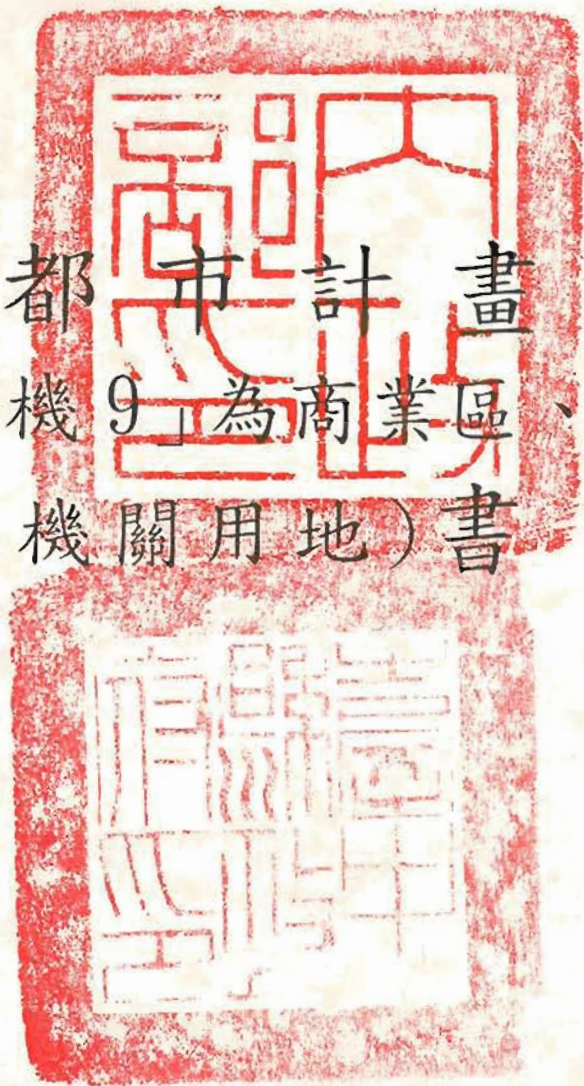 都市計畫
機9」為商業區、
機關用地）書
內政
部印
臺中
縣政
府印